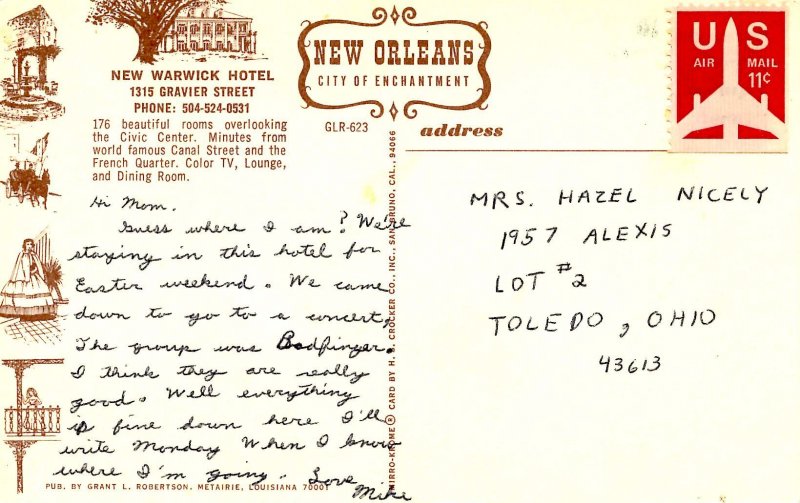 NEW WARWICK HOTEL
1315 GRAVIER STREET
PHONE: 504-524-0531
176 beautiful rooms overlooking
the Civic Center. Minutes from
world famous Canal Street and the
French Quarter. Color TV, Lounge,
and Dining Room.
NEW ORLEANS
CITY OF ENCHANTMENT
GLR-623
address
US
AIR MAIL
11¢
Hi Mom.
Guess where I am? We're
staying in this hotel for
Easter weekend. We came
down to go to a concert.
The group was Badfinger.
I think they are really
good. Well everything
is fine down here I'll
write Monday When I know
where I'm going. Love
Mike
PUB. BY GRANT L. ROBERTSON. METAIRIE, LOUISIANA 70001
MIRRO-KROME® CARD BY H. S. CROCKER CO., INC., SAN BRUNO, CAL., 94066
MRS. HAZEL NICELY
1957 ALEXIS
LOT #2
TOLEDO, OHIO
43613